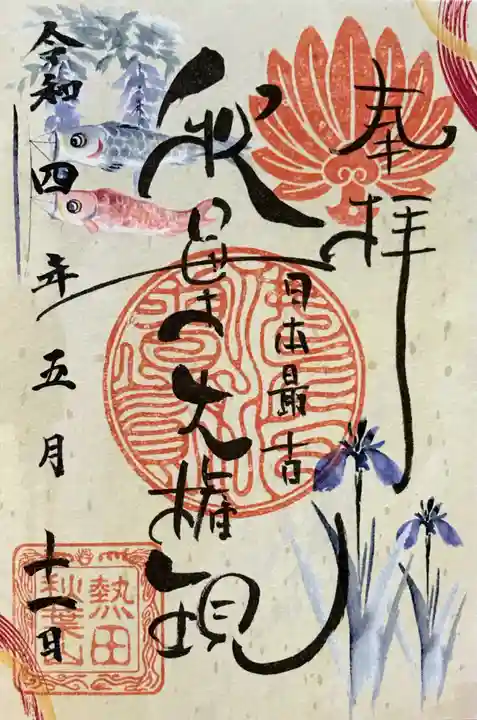 奉拝
日本最古
秋葉大権現
令和四年五月十一日
熱田
秋葉山